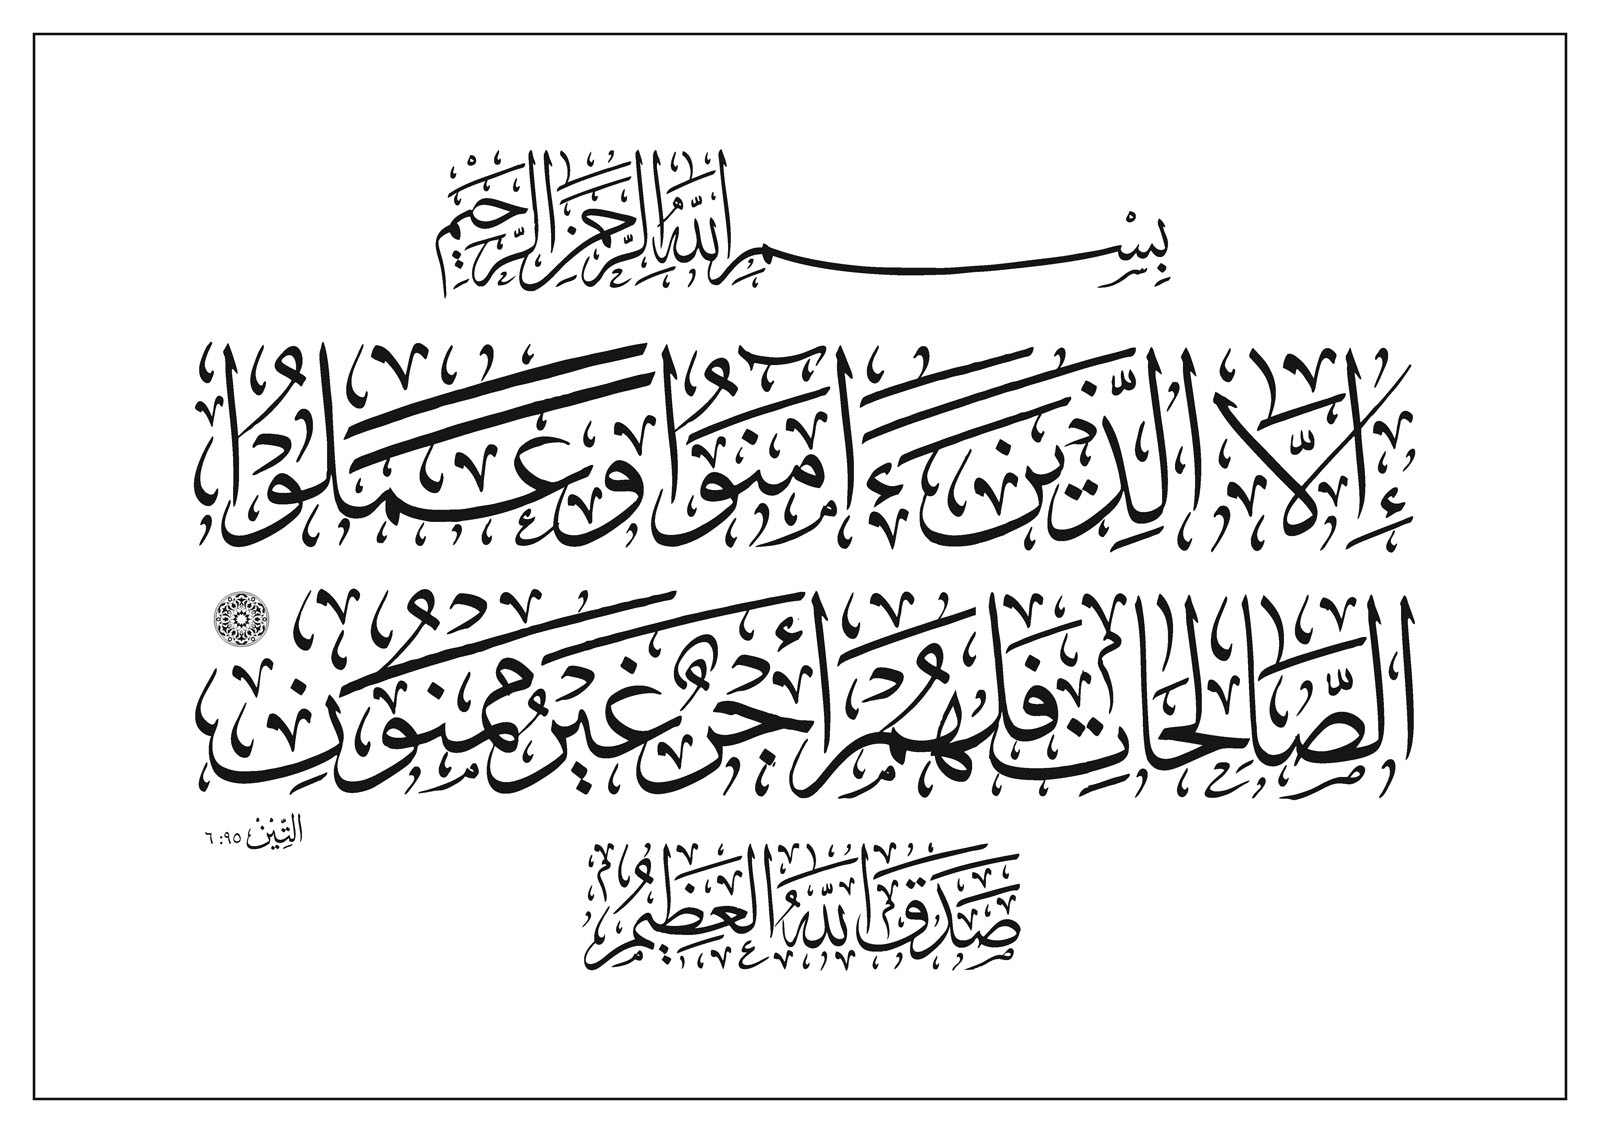 بِسْمِ اللَّهِ الرَّحْمَنِ الرَّحِيمِ
إِلَّا الَّذِينَ ءَامَنُوا وَعَمِلُوا
الصَّالِحَاتِ فَلَهُمْ أَجْرٌ غَيْرُ مَمْنُونٍ
التِّيْنِ ٩٥: ٦
صَدَقَ اللَّهُ الْعَظِيمُ